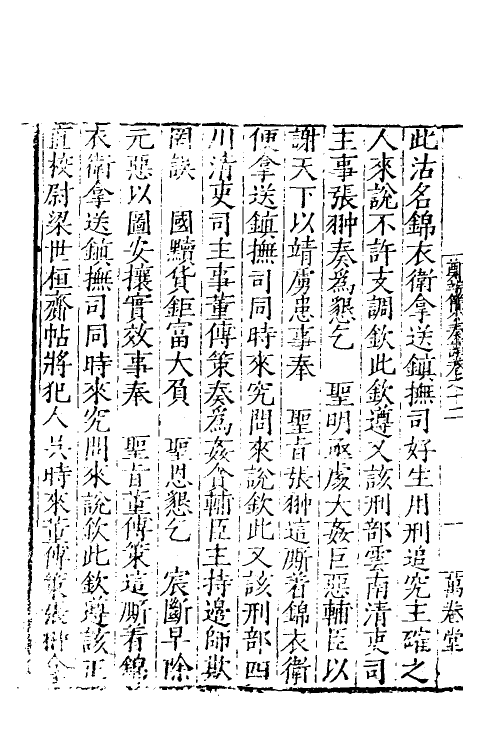 此沽名錦衣衛拿送鎮撫司好生用刑追究主確之
人來說不許支調欽此欽遵又該刑部雲南清吏司
主事張翀奏爲懇乞　聖明亟處大姦巨惡輔臣以
謝天下以靖虜患事奉　聖旨張翀這厮着錦衣衛
便拿送鎮撫司同時來究問來說欽此又該刑部四
川清吏司主事董傳策奏爲姦貪輔臣主持邊師欺
罔誤　國黷貨鉅富大負　聖恩懇乞　宸斷早除
元惡以圖安攘實效事奉　聖旨董傳策這厮着錦
衣衛拿送鎮撫司同時來究問來說欽此欽遵該正
直校尉梁世桓齎帖將犯人吳時來董傳策張翀
卷之十二
一
萬卷堂